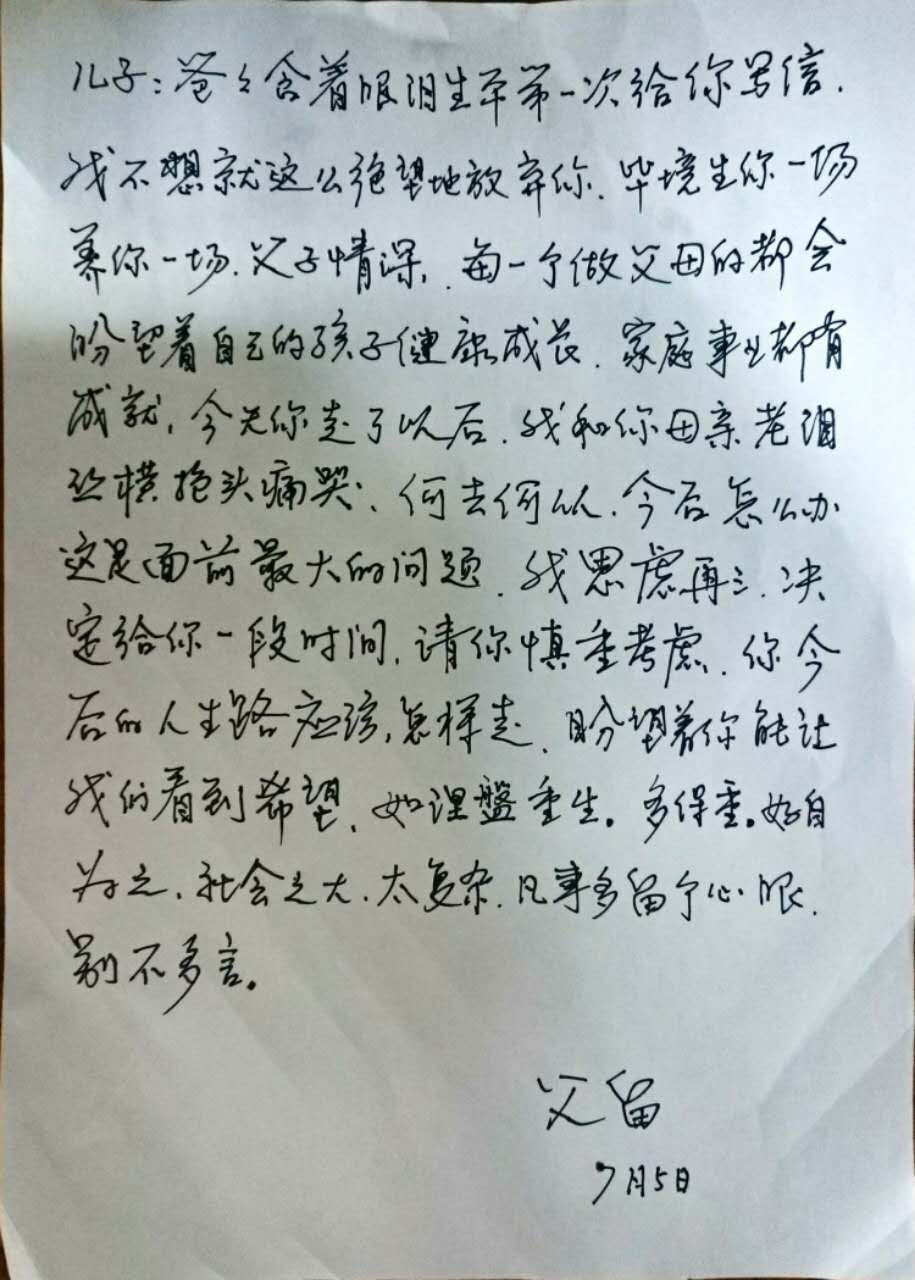 儿子：爸々含着眼泪生平第一次给你写信.
我不想就这么绝望地放弃你、毕境生你一场
养你一场、父子情深、每一个做父母的都会
盼望着自己的孩子健康成长、家庭事业都有
成就，今天你走了以后、我和你母亲老泪
纵横抱头痛哭、何去何从、今后怎么办
这是面前最大的问题、我思虑再三、决
定给你一段时间，请你慎重考虑、你今
后的人生路应该怎样走、盼望着你能让
我们看到希望、如涅盤重生。多保重。好自
为之、社会之大、太复杂、凡事多留个心眼、
别不多言。
父留
7月5日